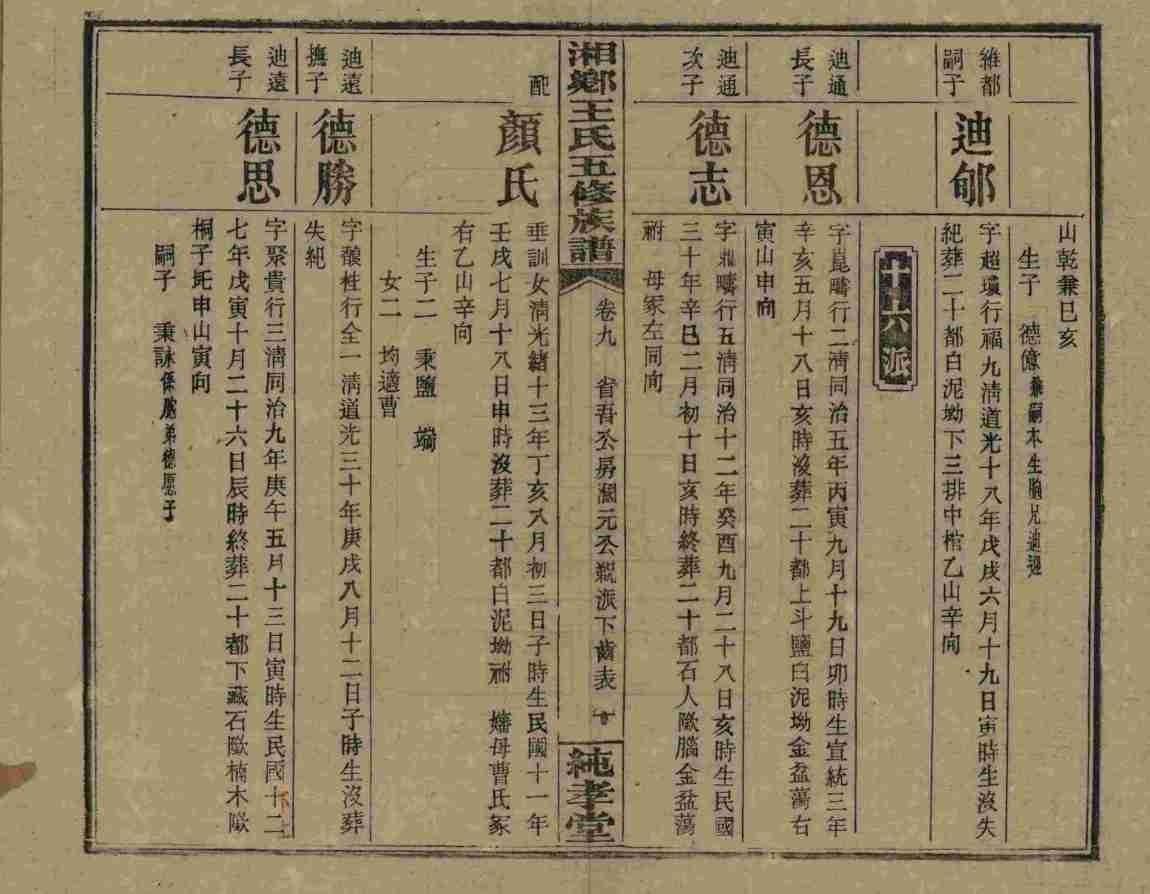 山乾兼巳亥
生子　德億兼嗣本生胞兄迪迎
維都
嗣子
迪郇
字超瓊行福九淸道光十八年戊戌六月十九日寅時生沒失
紀葬二十都白泥坳下三排中棺乙山辛向
廿六派
迪通
長子
德恩
字崑疇行二淸同治五年丙寅九月十九日卯時生宣統三年
辛亥五月十八日亥時沒葬二十都上斗鹽白泥坳金盆蕩右
寅山申向
迪通
次子
德志
字鼎疇行五淸同治十二年癸酉九月二十八日亥時生民國
三十年辛巳二月初十日亥時終葬二十都石人歐腦金盆蕩
祔　母冢左同向
湘鄉王氏五修族譜
卷九　省吾公房瀾元公派下齒表
純孝堂
配
顏氏
垂訓女淸光緒十三年丁亥八月初三日子時生民國十一年
壬戌七月十八日申時沒葬二十都白泥坳祔　嬸母曹氏冢
右乙山辛向
生子二　秉鹽　端
女二　均適曹
迪遠
撫子
德勝
字釀桂行全一淸道光三十年庚戌八月十二日子時生沒葬
失紀
迪遠
長子
德思
字聚貴行三淸同治九年庚午五月十三日寅時生民國十二
七年戊寅十月二十六日辰時終葬二十都下藏石歐楠木歐
桐子坵申山寅向
嗣子　秉詠係胞弟德愿子